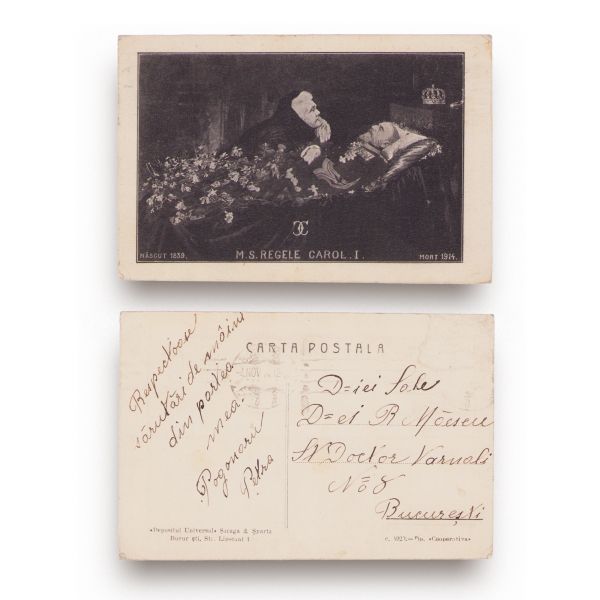 NĂSCUT 1839.
M.S. REGELE CAROL. I.
MORT 1914.
CARTA POSTALA
NOV
Respectuoase
sărutări de mâini
din partea
mea
Pogonaru
Petra
D-iei Sale
D-ei R Măcescu
St Doctor Varnali
No 8
București
«Depositul Universal» Șaraga & Șvartz
București, Str. Lipscani 1
c. 1021.— Tip. «Cooperativa»